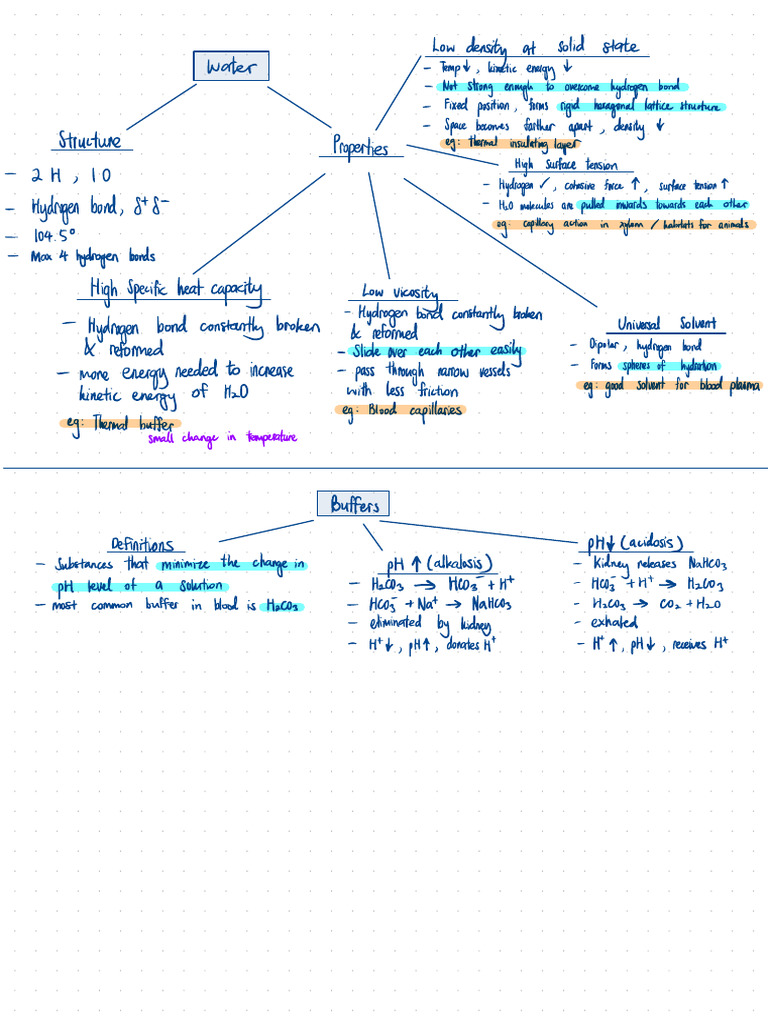 Water
Structure
- 2 H, 1 O
- Hydrogen bond, δ⁺ δ⁻
- 104.5°
- Max 4 hydrogen bonds
Properties
Low density at solid state
- Temp ↓, kinetic energy ↓
- Not strong enough to overcome hydrogen bond
- Fixed position, forms rigid hexagonal lattice structure
- Space becomes farther apart, density ↓
eg: Thermal insulating layer
High Surface tension
- Hydrogen ✓, cohesive force ↑, surface tension ↑
- H₂O molecules are pulled inwards towards each other
eg: capillary action in xylem / habitats for animals
High Specific heat capacity
- Hydrogen bond constantly broken
& reformed
- more energy needed to increase
kinetic energy of H₂O
eg: Thermal buffer
small change in temperature
Low vicosity
- Hydrogen bond constantly broken
& reformed
- Slide over each other easily
- pass through narrow vessels
with less friction
eg: Blood capillaries
Universal Solvent
- Dipolar, hydrogen bond
- Forms spheres of hydration
eg: good solvent for blood plasma
Buffers
Definitions
- Substances that minimize the change in
pH level of a solution
- most common buffer in blood is H₂CO₃
pH ↑ (alkalosis)
- H₂CO₃ → HCO₃⁻ + H⁺
- HCO₃⁻ + Na⁺ → NaHCO₃
- eliminated by kidney
- H⁺ ↓, pH ↑, donates H⁺
pH ↓ (acidosis)
- Kidney releases NaHCO₃
- HCO₃⁻ + H⁺ → H₂CO₃
- H₂CO₃ → CO₂ + H₂O
- exhaled
- H⁺ ↑, pH ↓, receives H⁺